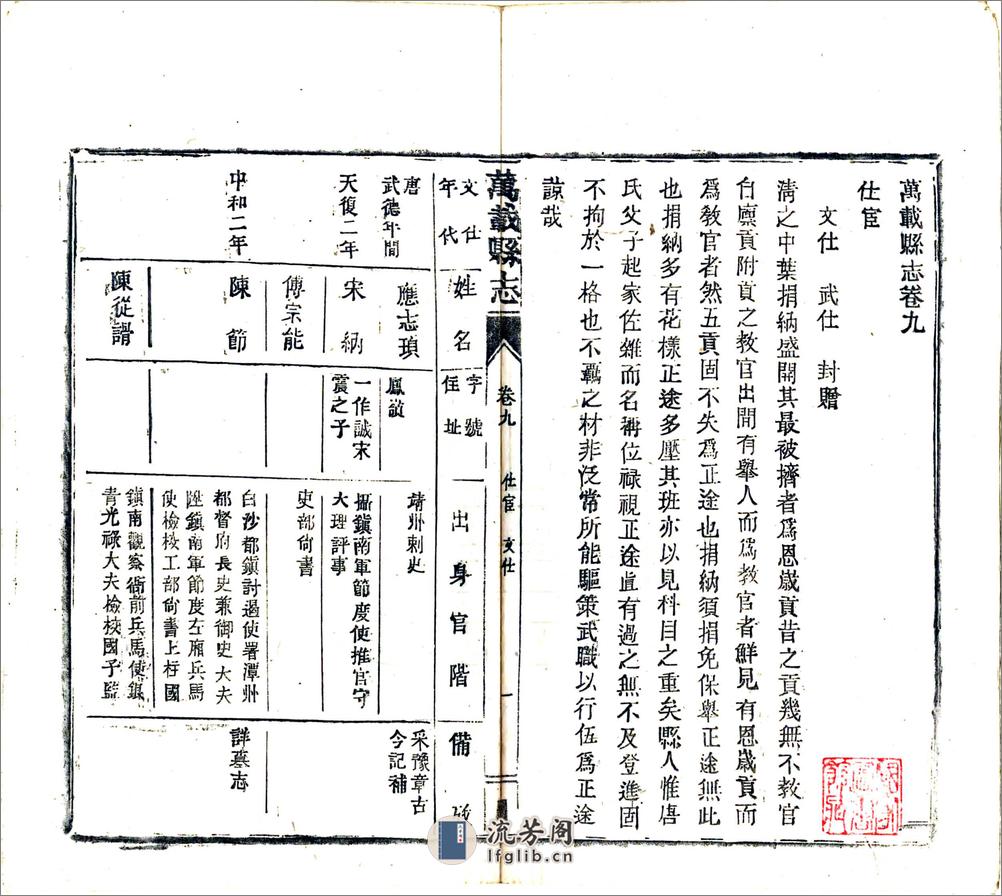 萬載縣志卷九
仕宦
文仕 武仕 封贈
清之中葉捐納盛開其最被擠者爲恩歲貢昔之貢幾無不教官
自廪貢附貢之教官出間有舉人而爲教官者鮮見有恩歲貢而
爲教官者然五貢固不失爲正途也捐納須捐免保舉正途無此
也捐納多有花樣正途多壓其班亦以見科目之重矣縣人惟唐
氏父子起家佐雜而名稱位禄視正途直有過之無不及登進固
不拘於一格也不羈之材非泛常所能驅策武職以行伍爲正途
諒哉
萬載縣志
卷九
仕宦 文仕
一
文仕年代
姓名
字號住址
出身官階
備攷
唐武德年間
應志瑣
鳳歧
靖州刺史
采豫章古今記補
天復二年
宋納
一作誠宋震之子
攝鎭南軍節度使推官守大理評事
傅宗能
吏部尙書
中和二年
陳節
白沙都鎭討遏使署潭州都督府長史兼御史大夫陞鎭南軍節度左厢兵馬使檢校工部尙書上柱國
詳墓志
陳從諝
鎭南觀察衙前兵馬使銀青光祿大夫檢校國子監
流芳阁
lfglib.cn